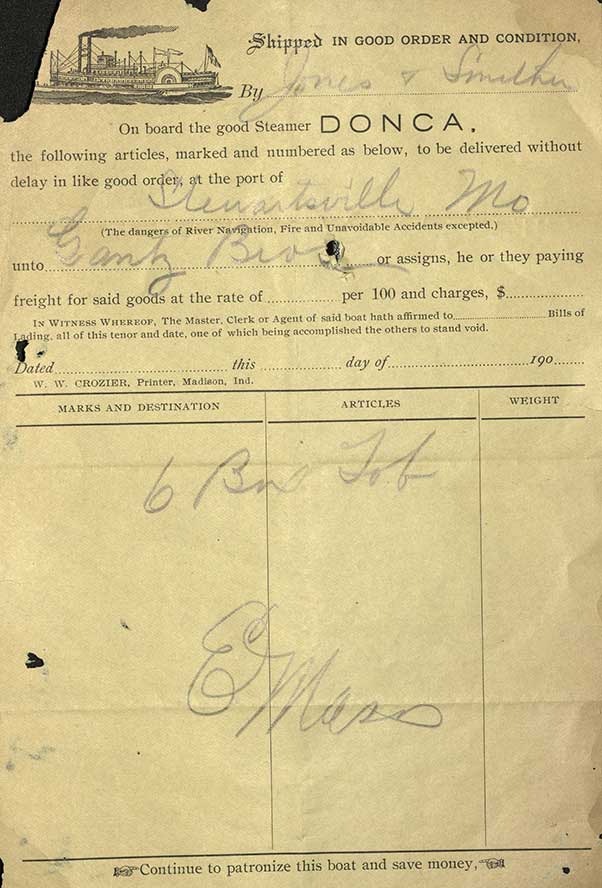 Shipped IN GOOD ORDER AND CONDITION,
By Jones &
On board the good Steamer DONCA,
the following articles, marked and numbered as below, to be delivered without
delay in like good order, at the port of
Stewartsville Mo
(The dangers of River Navigation, Fire and Unavoidable Accidents excepted.)
unto Gantz Bros or assigns, he or they paying
freight for said goods at the rate of ............... per 100 and charges, $...............
IN WITNESS WHEREOF, The Master, Clerk or Agent of said boat hath affirmed to............... Bills of
Lading, all of this tenor and date, one of which being accomplished the others to stand void.
Dated............... this ............... day of............... 190........
W. W. CROZIER, Printer, Madison, Ind.
MARKS AND DESTINATION ARTICLES WEIGHT
6 Tob
E Mass
Continue to patronize this boat and save money,